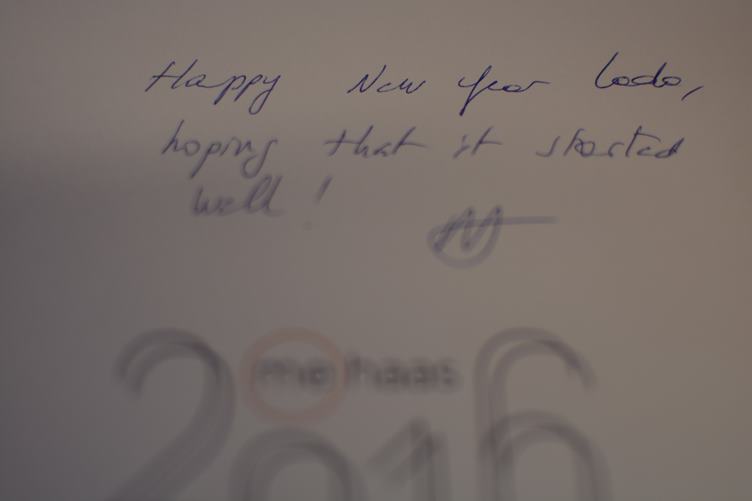 Happy New Year Lodo,
hoping that it started
well!
me haas
2016